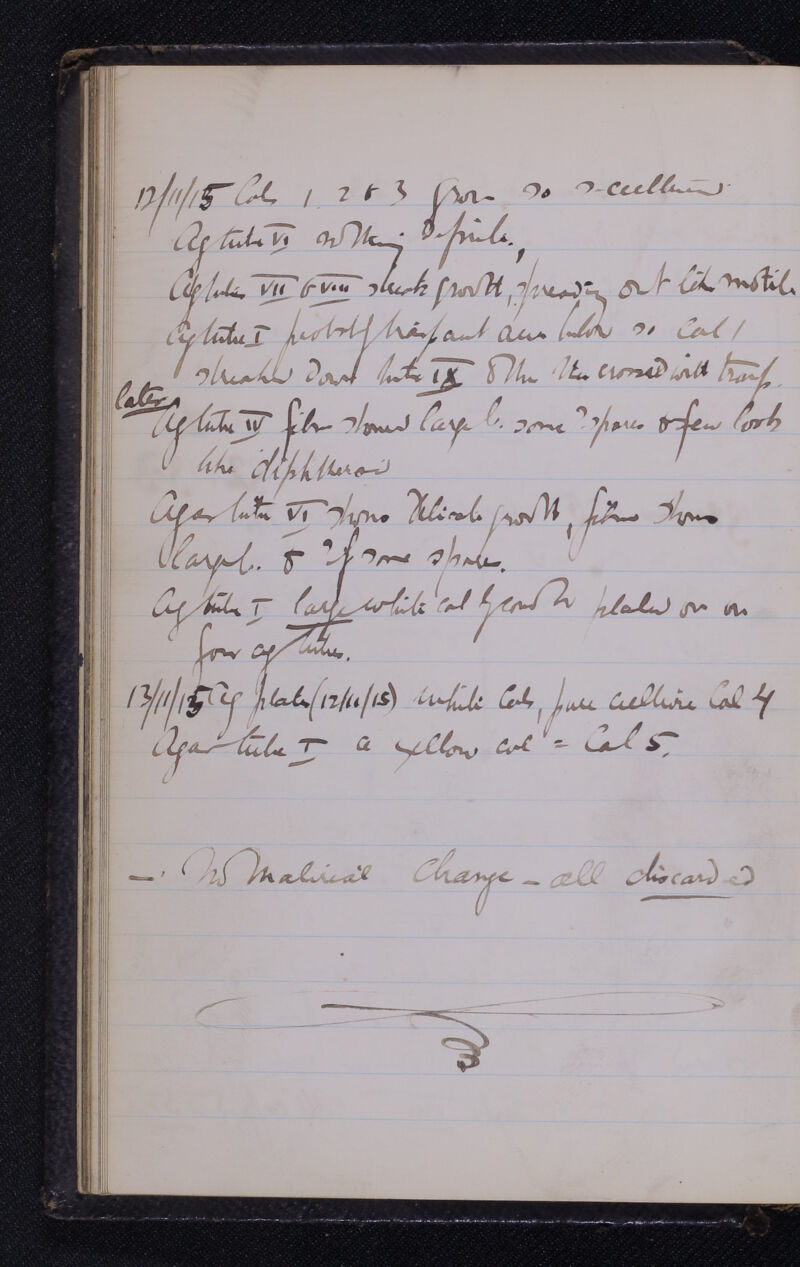 12/11/15 Cols 1, 2 & 3 grow so s-cultured
Ag tube VI nothing definite.
Ag tubes VII & VIII streak growth, spreading out like motile
Ag tube I so Col 1
streaked down tube IX & then crossed with transp.
later Ag tube IV film shows large b. some ? spores & few look
like diphtheroid
Agar tube VI shows delicate growth, films show
large b. & ? if some spores.
Ag tube I large white col plated on
four ag tubes.
13/11/15 Ag plates (12/11/15) white Cols, pure culture Col 4
Agar tube I a yellow col = Col 5.
— No material change – all discarded